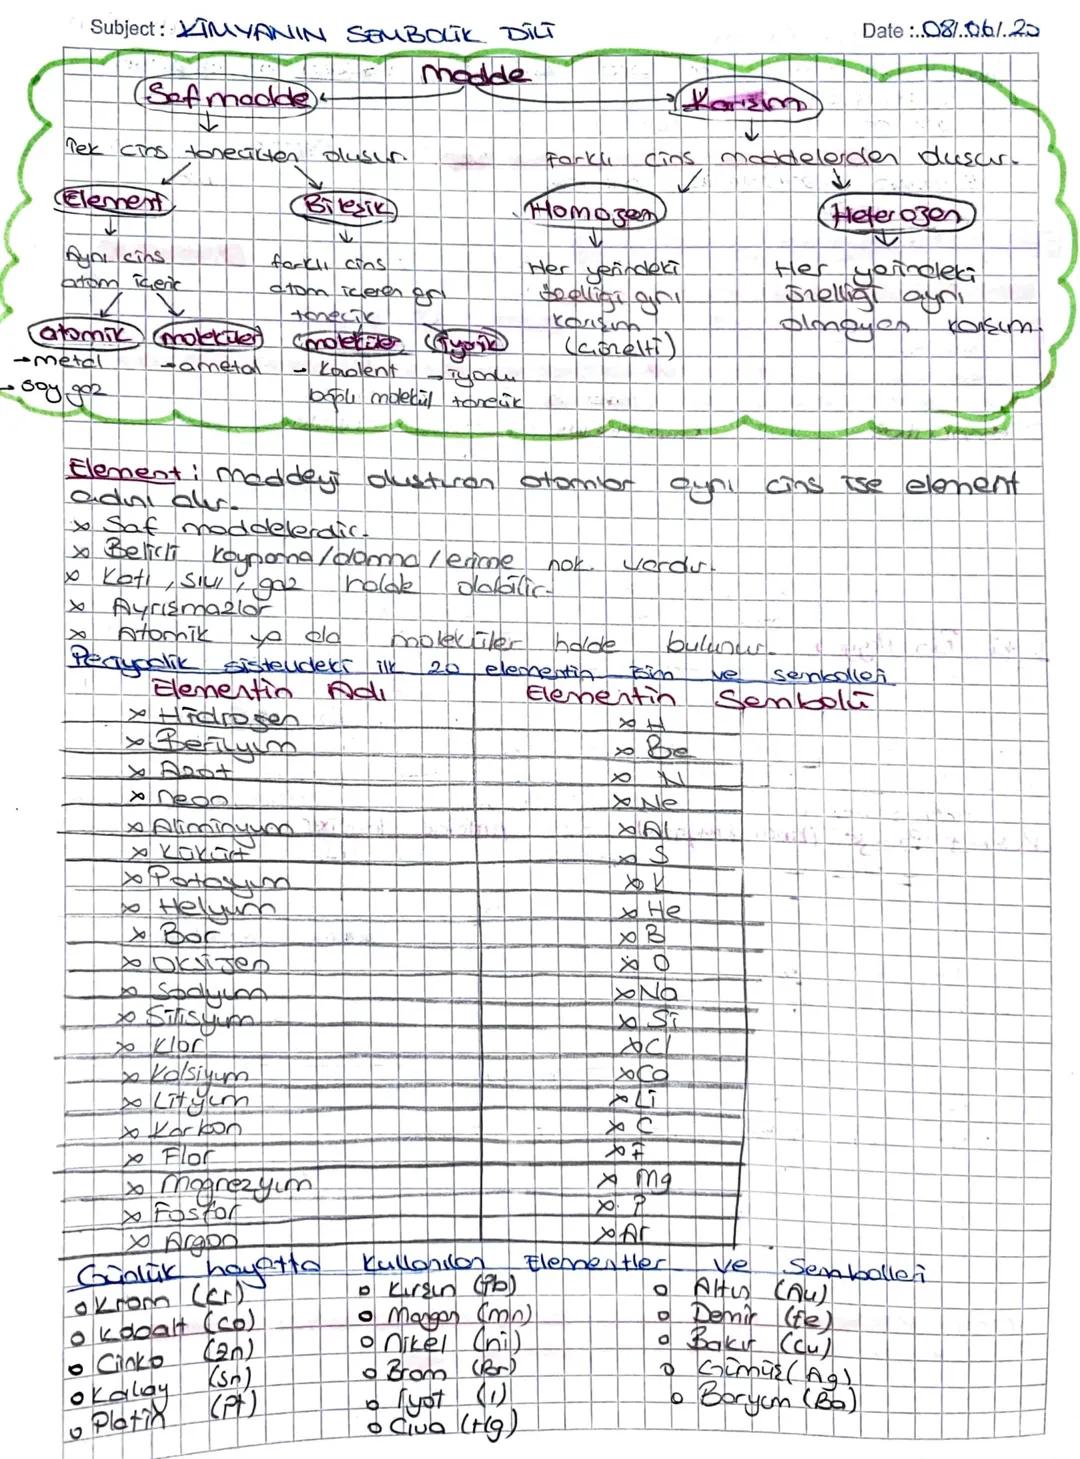 Subject: KİMYANIN SEMBOLİK DİLİ Date: 08/.06/.20
madde
Saf madde Karışım
Tek cins tanecikten oluşur. Farklı cins maddelerden oluşur.
Element Bileşik Homojen Heterojen
Aynı cins atom içerir
farklı cins atom içeren aynı tanecik
Her yerindeki özelliği aynı karışım (çözelti)
Her yerindeki özelliği aynı olmayan karışım.
atomik moleküler moleküler iyonik
→metal →ametal → kovalent →iyonlu
→ soy gaz bağlı molekül tanecik
Element: maddeyi oluşturan atomlar aynı cins ise element
adını alır.
x Saf maddelerdir.
x Belirli kaynama/donma/erime nok. vardır.
x Katı, sıvı, gaz halde olabilir.
x Ayrışmazlar
x Atomik ya da moleküler halde bulunur.
Periyodik sistemdeki ilk 20 elementin isim ve sembolleri
Elementin Adı Elementin Sembolü
x Hidrojen x H
x Berilyum x Be
x Azot x N
x neon x Ne
x Aliminyum x Al
x Kükürt x S
x Potasyum x K
x Helyum x He
x Bor x B
x Oksijen x O
x Sodyum x Na
x Silisyum x Si
x Klor x Cl
x Kalsiyum x Ca
x Lityum x Li
x Karbon x C
x Flor x F
x Magnezyum x Mg
x Fosfor x P
x Argon x Ar
Günlük hayatta Kullanılan Elementler ve Sembolleri
o Krom (Cr) o Kurşun (Pb) o Altın (Au)
o Kobalt (Co) o Mangan (mn) o Demir (fe)
o Cinko (Zn) o Nikel (ni) o Bakır (Cu)
o Kalay (Sn) o Brom (Br) o Gümüş (Ag)
o Platin (Pt) o İyot (I) o Baryum (Ba)
o Civa (Hg)